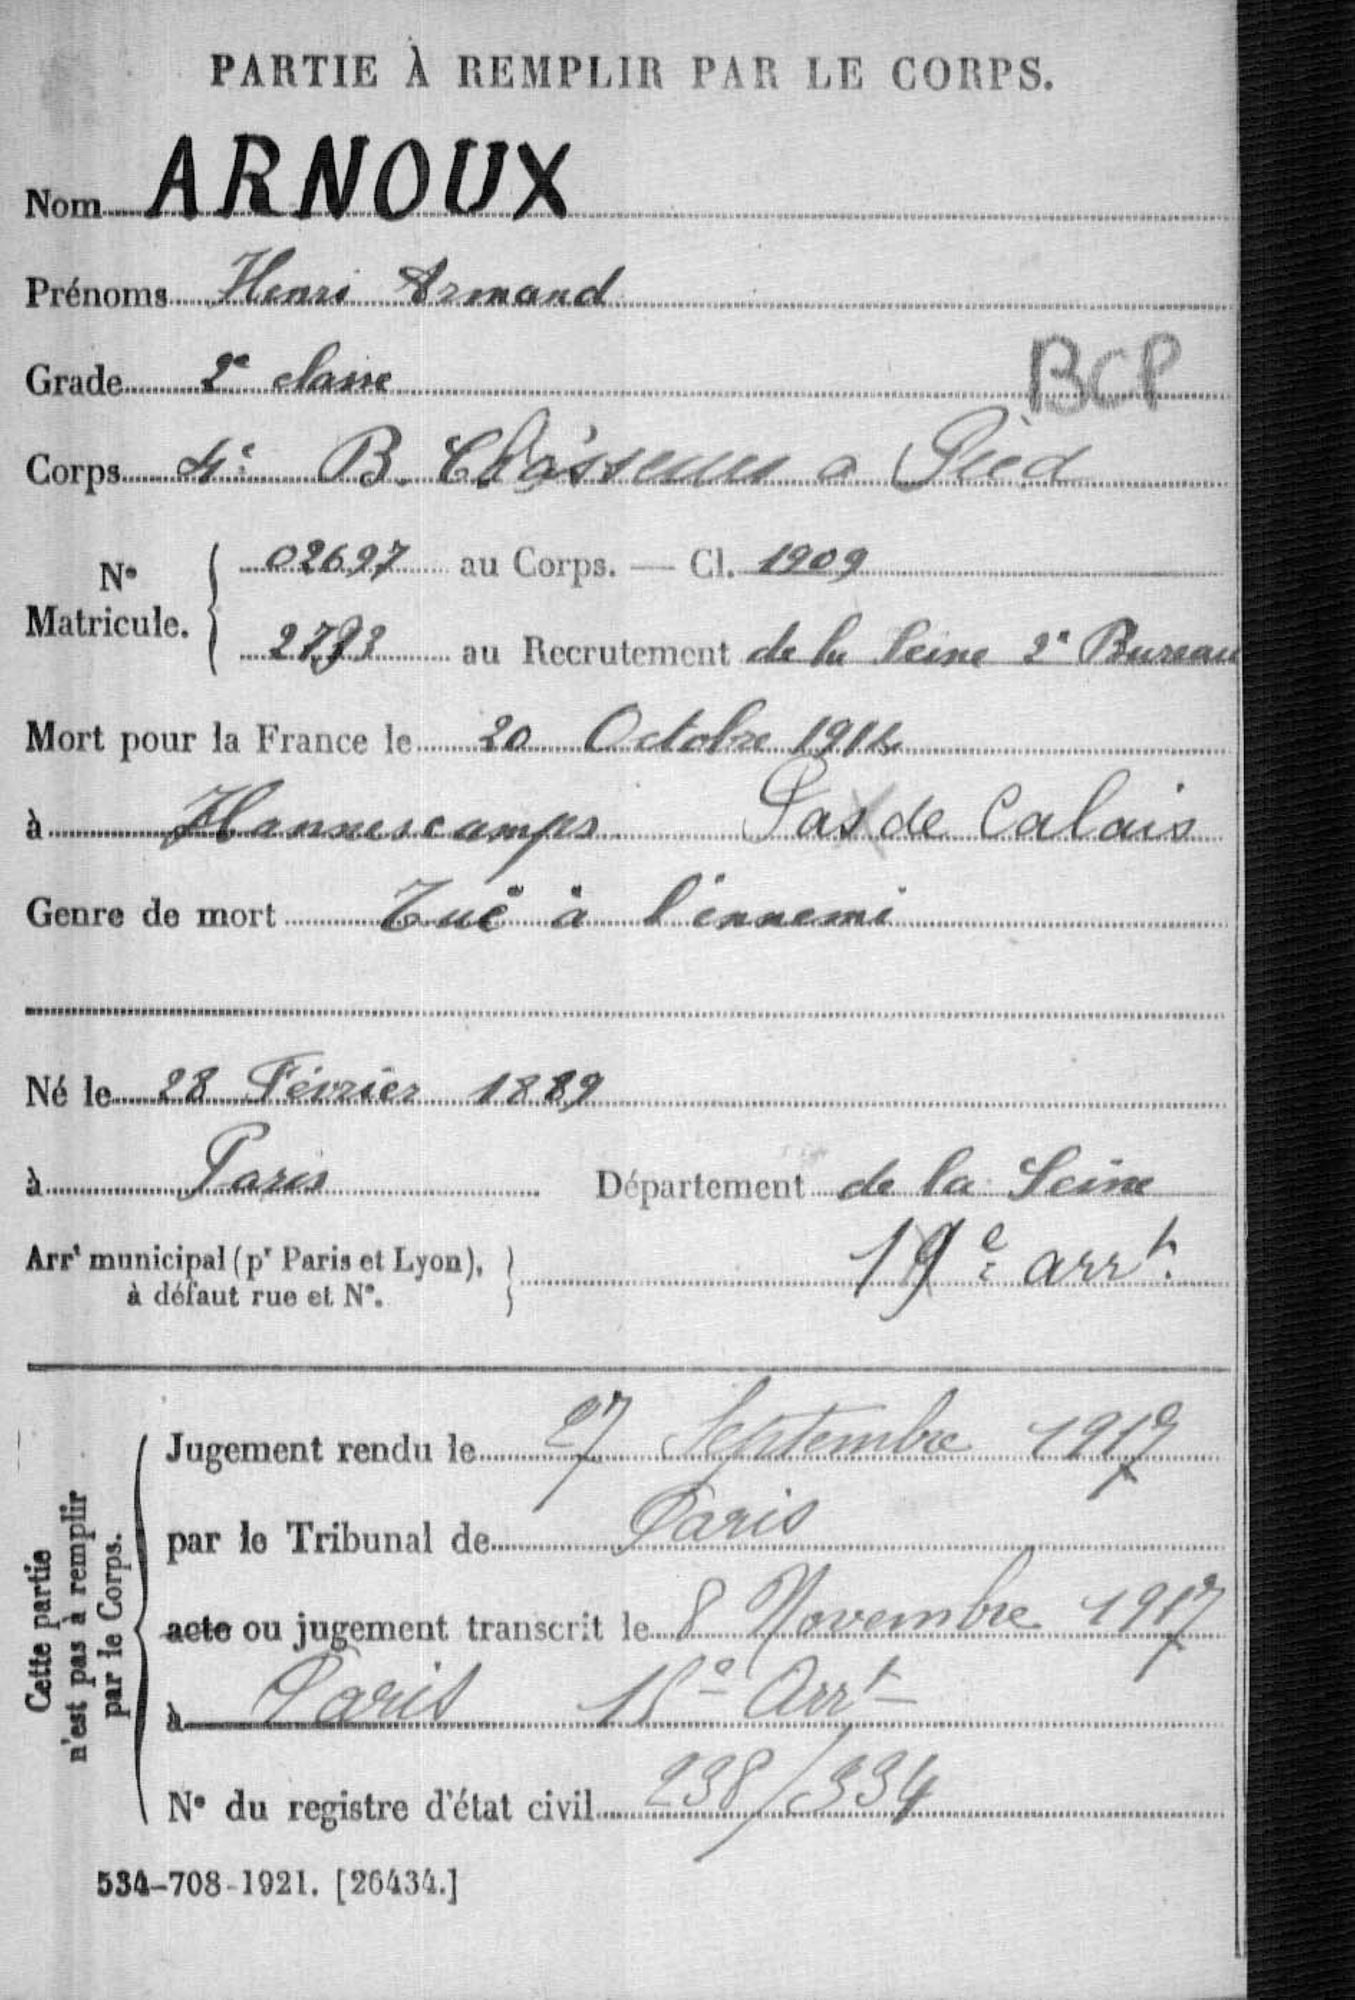 PARTIE À REMPLIR PAR LE CORPS.
Nom ARNOUX
Prénoms Henri Armand
Grade 2e classe
BCP
Corps 4e B. Chasseurs a Pied
No Matricule. { 02697 au Corps. — Cl. 1909
au Recrutement de la Seine 2e Bureau
Mort pour la France le 20 Octobre 1914
à Hannescamps Pas de Calais
Genre de mort Tué à l'ennemi
Né le 28 Février 1889
à Paris Département de la Seine
Arrt municipal (pr Paris et Lyon), à défaut rue et No. } 19e arrt.
Cette partie n'est pas à remplir par le Corps.
Jugement rendu le 27 Septembre 1917
par le Tribunal de Paris
acte ou jugement transcrit le 8 Novembre 1917
à Paris Arrt
No du registre d'état civil 238/334
534-708-1921. [26434.]